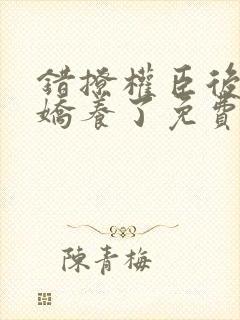 錯撩權臣後
嬌養了免費
陳青梅